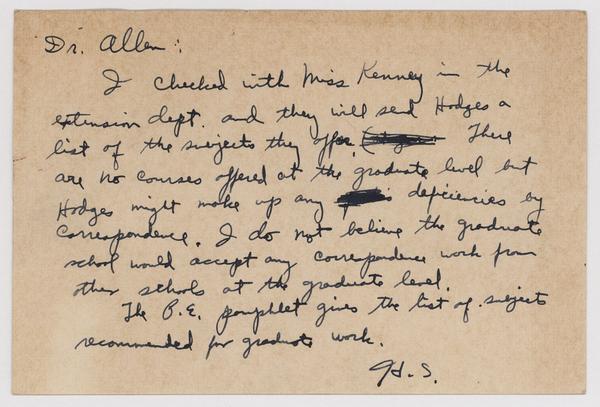 Dr. Allen:
I checked with Miss Kenney in the
extension dept. and they will send Hodges a
list of the subjects they offer. There
are no courses offered at the graduate level but
Hodges might make up any deficiencies by
correspondence. I do not believe the graduate
school would accept any correspondence work from
other schools at the graduate level.
The P.E. pamphlet gives the list of subjects
recommended for graduate work.
H.S.